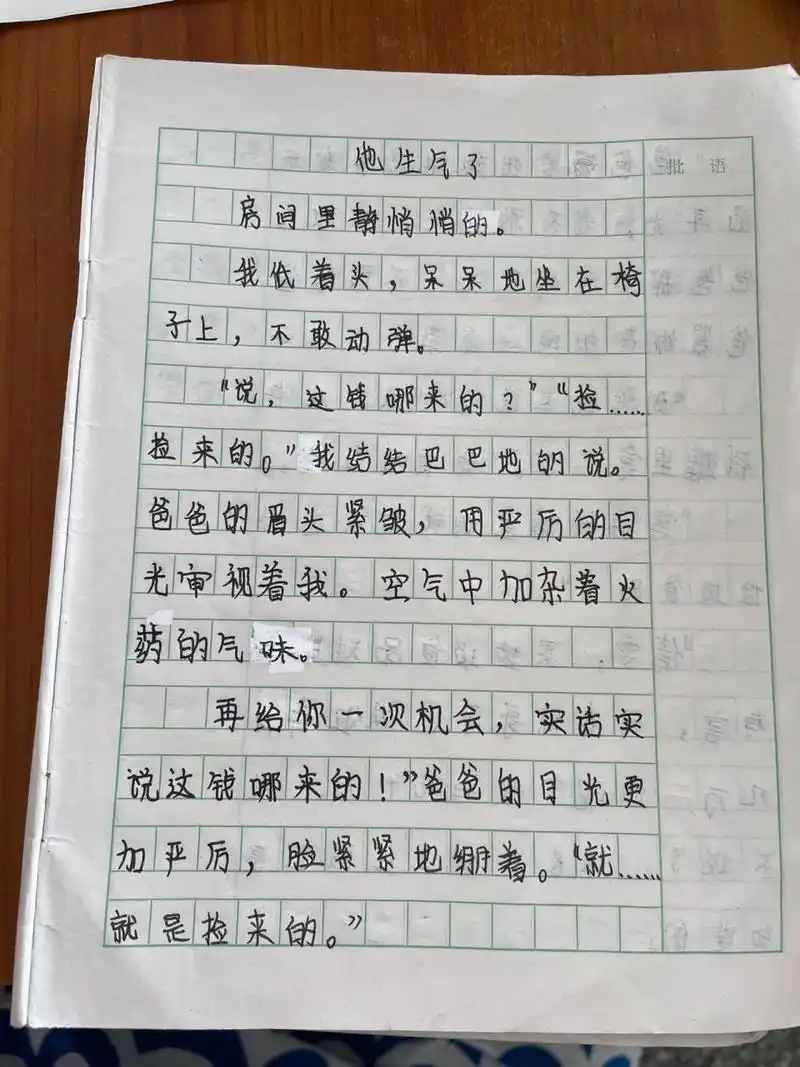 他生气了
批语
房间里静悄悄的。
我低着头，呆呆地坐在椅
子上，不敢动弹。
“说，这钱哪来的？”“捡……
捡来的。”我结结巴巴地的说。
爸爸的眉头紧皱，用严厉的目
光审视着我。空气中加杂着火
药的气味。
再给你一次机会，实话实
说这钱哪来的！”爸爸的目光更
加严厉，脸紧紧地绷着。“就……
就是捡来的。”